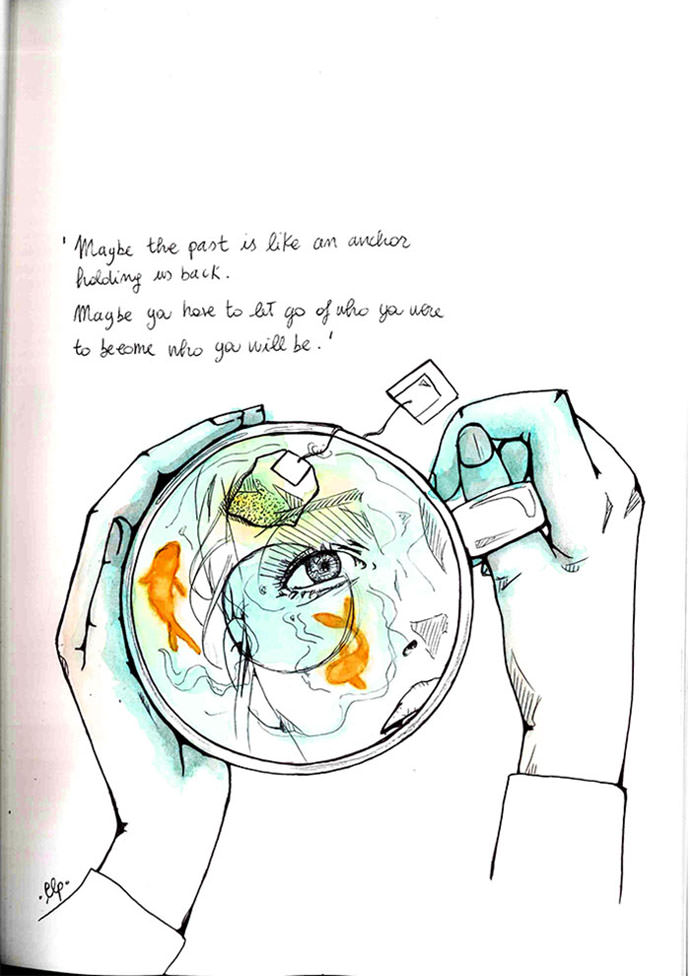 'Maybe the past is like an anchor
holding us back.
Maybe ya have to let go of who ya were
to become who ya will be.'